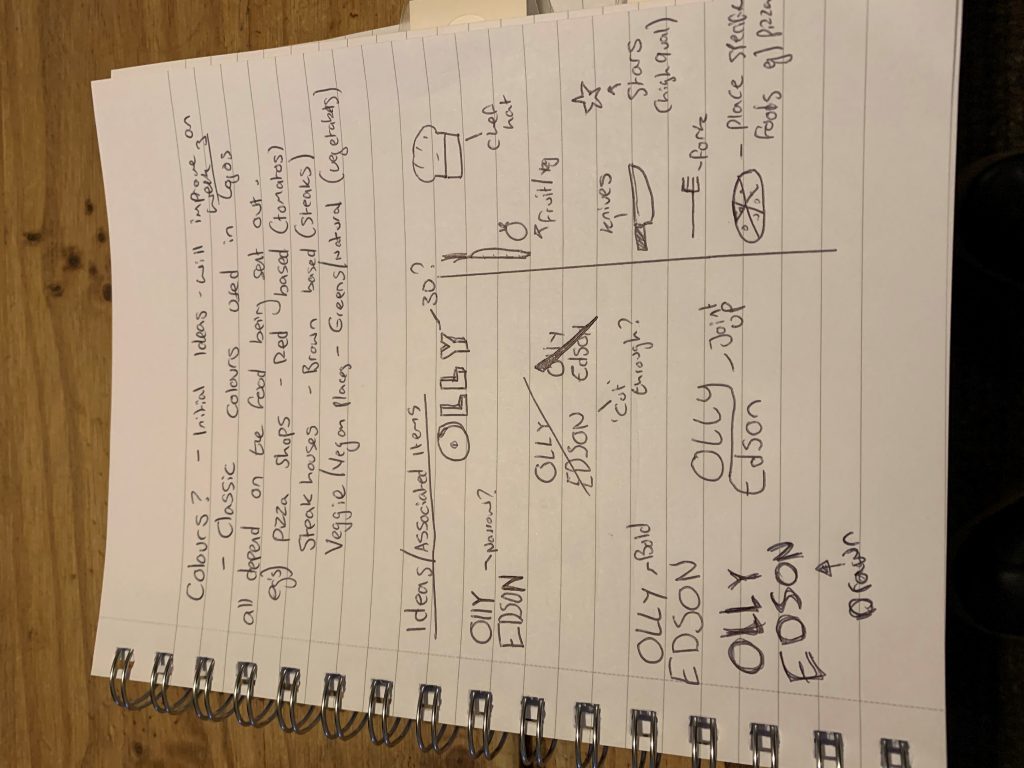 Colours? - Initial Ideas - will improve on
week 3
- Classic colours used in logos
all depend on the food being sent out.
eg) Pizza shops - Red based (tomatos)
Steak houses - Brown based (steaks)
Veggie/Vegan places - Greens/Natural (vegetables)
Ideas/Associated Items
OLLY - Narrow?
EDSON
OLLY - 3D?
OLLY
EDSON
Olly
Edson
Cut
through?
OLLY - Bold
EDSON
OLLY - Joint
Edson up
OLLY
EDSON
Drawn
Chef
hat
Fruit/veg
knives
Stars
(high qual)
Fork
- Place specific
foods eg) pizza